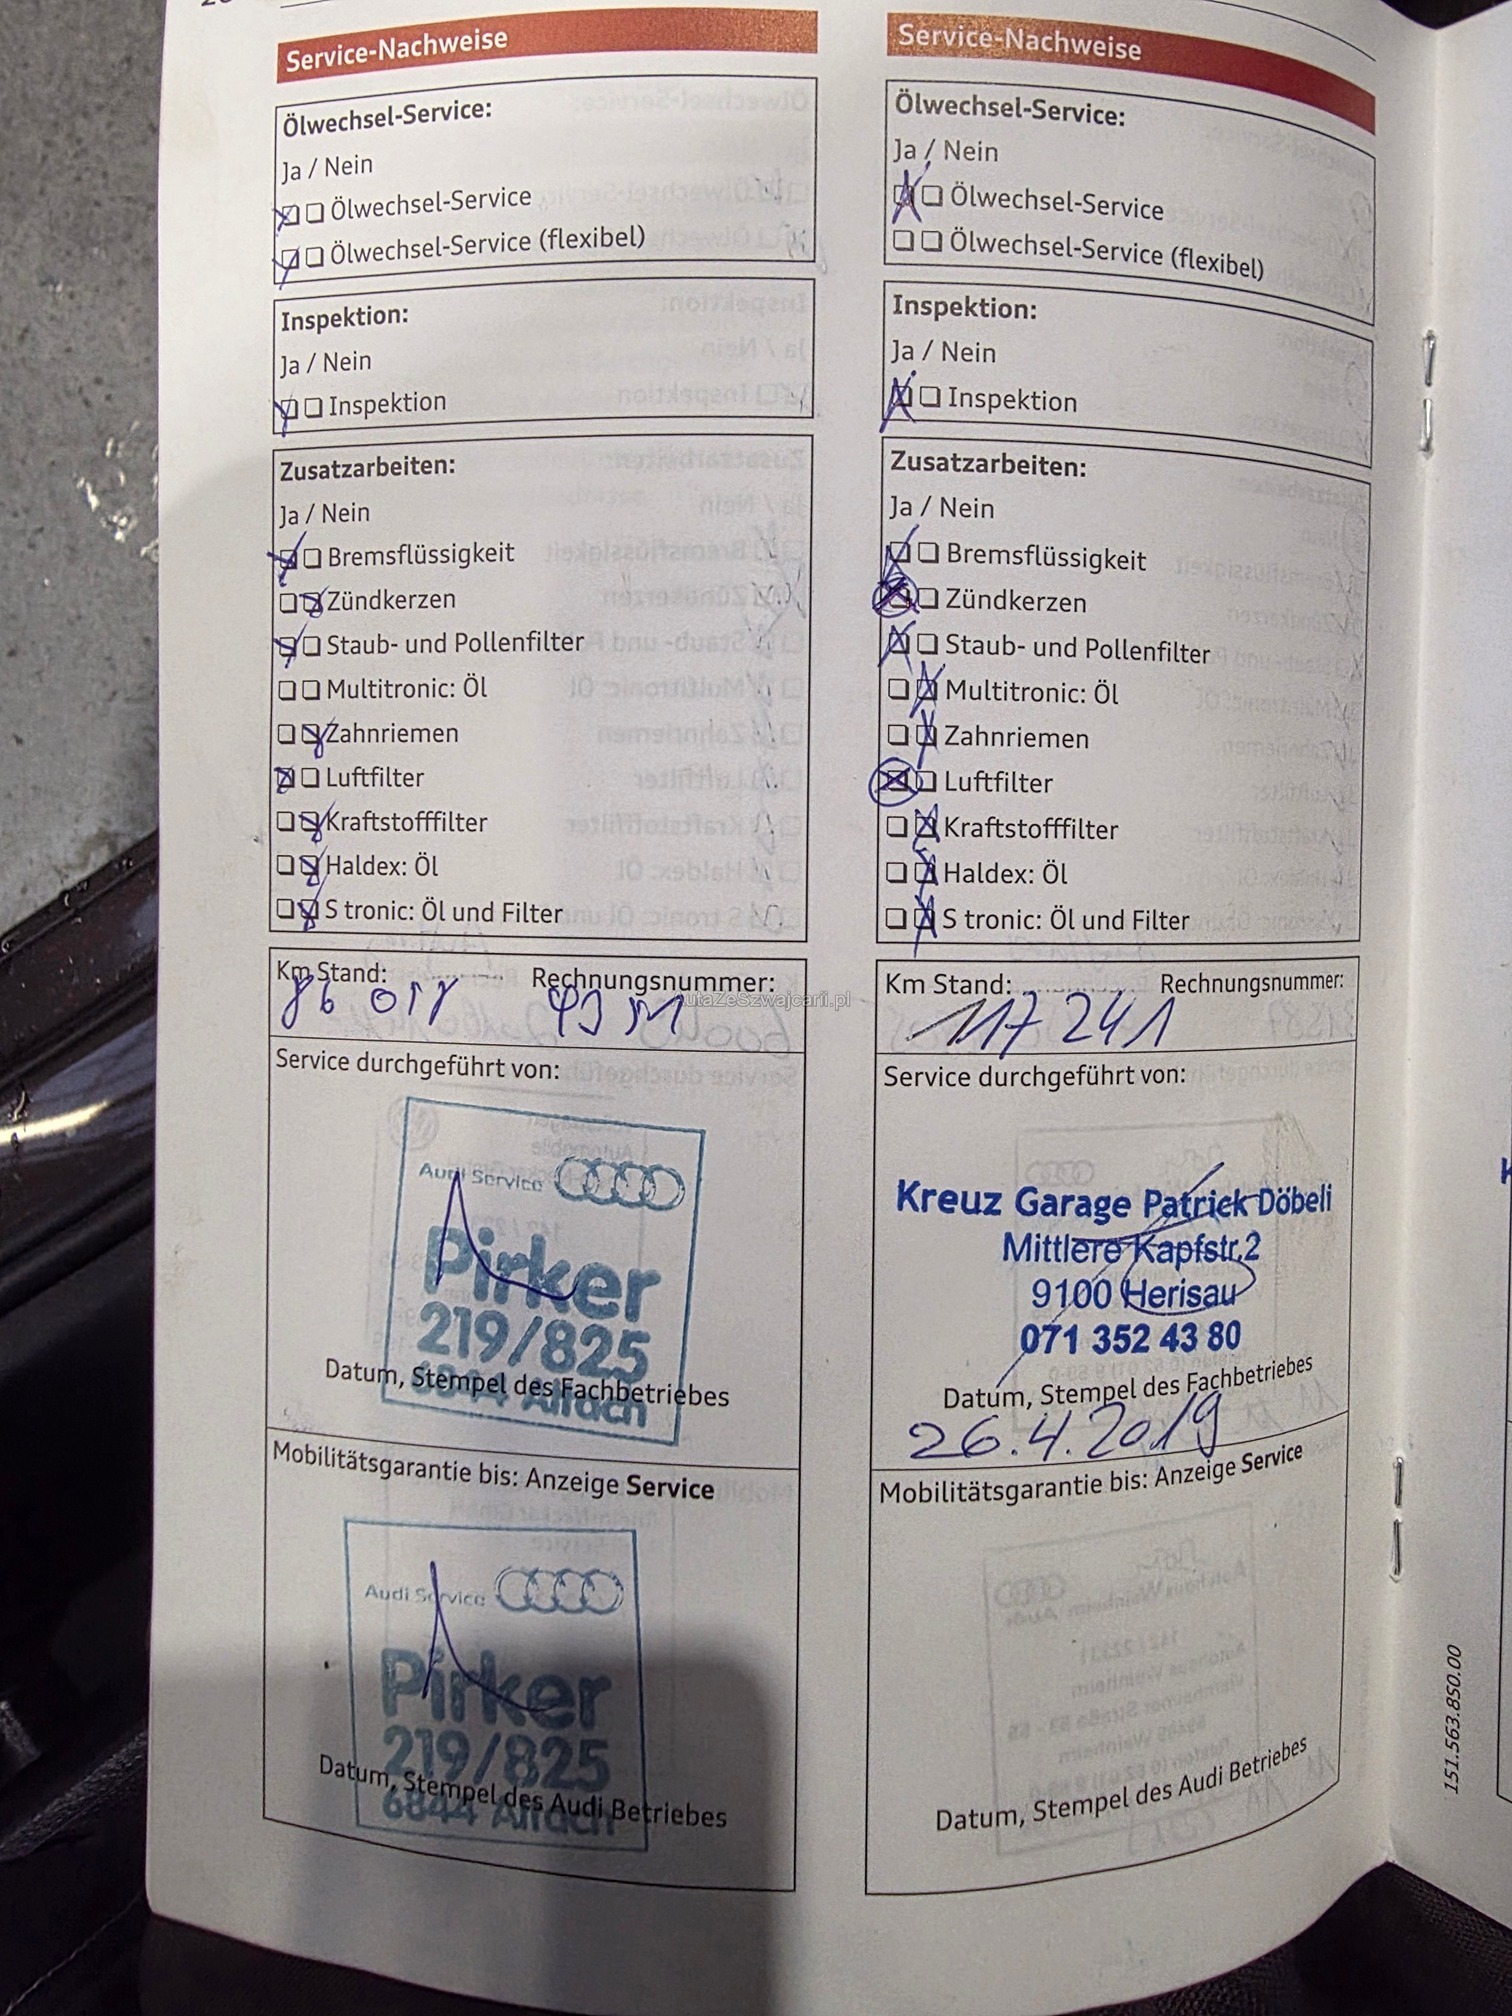 Service-Nachweise
Ölwechsel-Service:
Ja / Nein
Ölwechsel-Service
Ölwechsel-Service (flexibel)
Inspektion:
Ja / Nein
Inspektion
Zusatzarbeiten:
Ja / Nein
Bremsflüssigkeit
Zündkerzen
Staub- und Pollenfilter
Multitronic: Öl
Zahnriemen
Luftfilter
Kraftstofffilter
Haldex: Öl
S tronic: Öl und Filter
Km Stand: Rechnungsnummer:
Service durchgeführt von:
Audi Service
Pirker
219/825
6844 Altach
Datum, Stempel des Fachbetriebes
Mobilitätsgarantie bis: Anzeige Service
Audi Service
Pirker
219/825
6844 Altach
Datum, Stempel des Audi Betriebes
Service-Nachweise
Ölwechsel-Service:
Ja / Nein
Ölwechsel-Service
Ölwechsel-Service (flexibel)
Inspektion:
Ja / Nein
Inspektion
Zusatzarbeiten:
Ja / Nein
Bremsflüssigkeit
Zündkerzen
Staub- und Pollenfilter
Multitronic: Öl
Zahnriemen
Luftfilter
Kraftstofffilter
Haldex: Öl
S tronic: Öl und Filter
Km Stand: Rechnungsnummer:
117 241
Service durchgeführt von:
Kreuz Garage Patrick Döbeli
Mittlere Kapfstr.2
9100 Herisau
071 352 43 80
Datum, Stempel des Fachbetriebes
26.4.2019
Mobilitätsgarantie bis: Anzeige Service
Datum, Stempel des Audi Betriebes
151.563.850.00
AutaZeSzwajcarii.pl